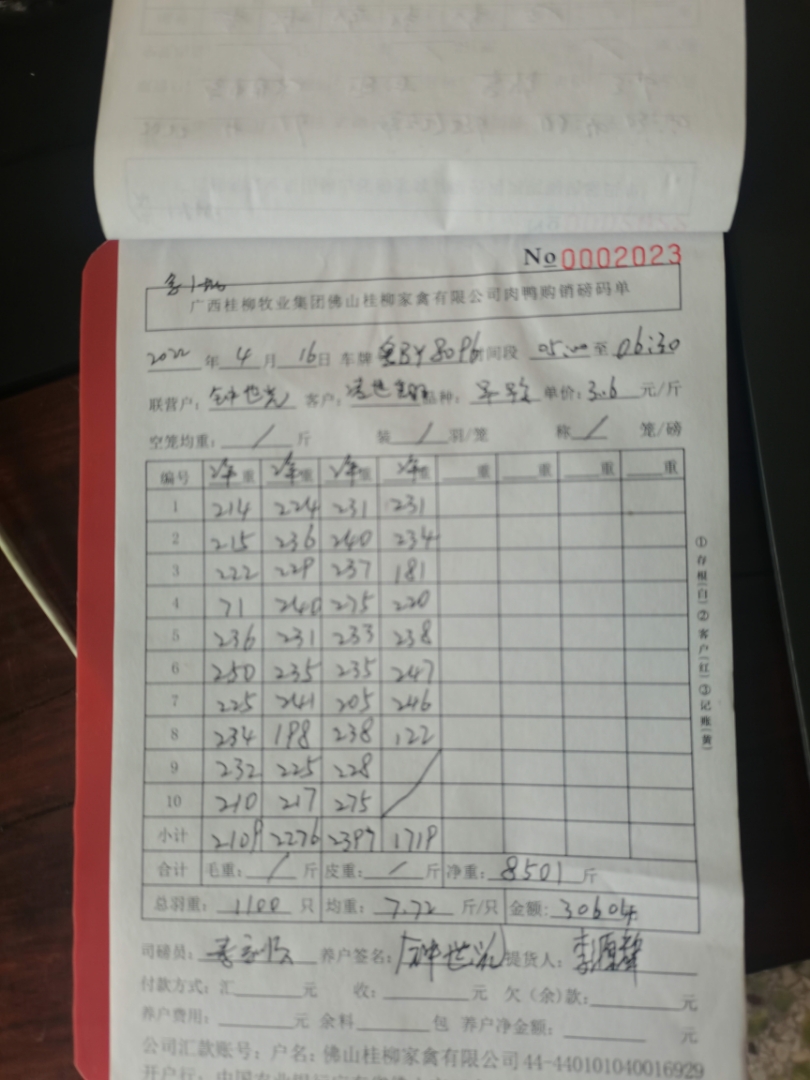 No 0002023
广西桂柳牧业集团佛山桂柳家禽有限公司肉鸭购销磅码单
2022 年 4 月 16 日 车牌 粤BY8096 时间段 05:00 至 06:30
联营户: 钟世兴 客户: 品种: 单价: 3.6 元/斤
空笼均重: / 斤 装 / 羽/笼 称 / 笼/磅
编号 净重 净重 净重 净重 重 重 重 重
1 214 224 231 231
2 215 236 240 234
3 222 229 237 181
4 71 240 275 220
5 236 231 233 238
6 250 235 235 247
7 225 241 205 246
8 234 198 238 122
9 232 225 228
10 210 217 275
小计 2109 2276 2397 1719
合计 毛重: / 斤 皮重: / 斤 净重: 8501 斤
总羽重: 1100 只 均重: 7.72 斤/只 金额: 30604
司磅员: 养户签名: 钟世兴 提货人:
付款方式: 汇 元 收: 元 欠(余)款: 元
养户费用: 元 余料 包 养户净金额: 元
公司汇款账号: 户名: 佛山桂柳家禽有限公司 44-440101040016929
①存根(白)②客户(红)③记账(黄)